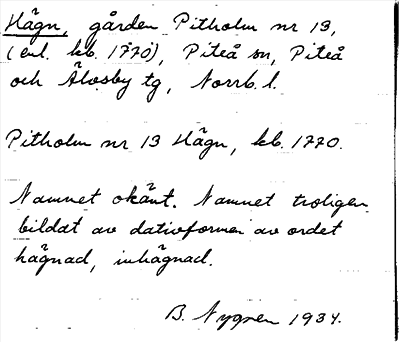 Hägn, gården Pitholm nr 13,
(enl. kb. 1770), Piteå sn, Piteå
och Älvsby tg, Norrb. l.
Pitholm nr 13 Hägn, kb. 1770.
Namnet okänt. Namnet troligen
bildat av dativformen av ordet
hägnad, inhägnad.
B. Nygren 1934.